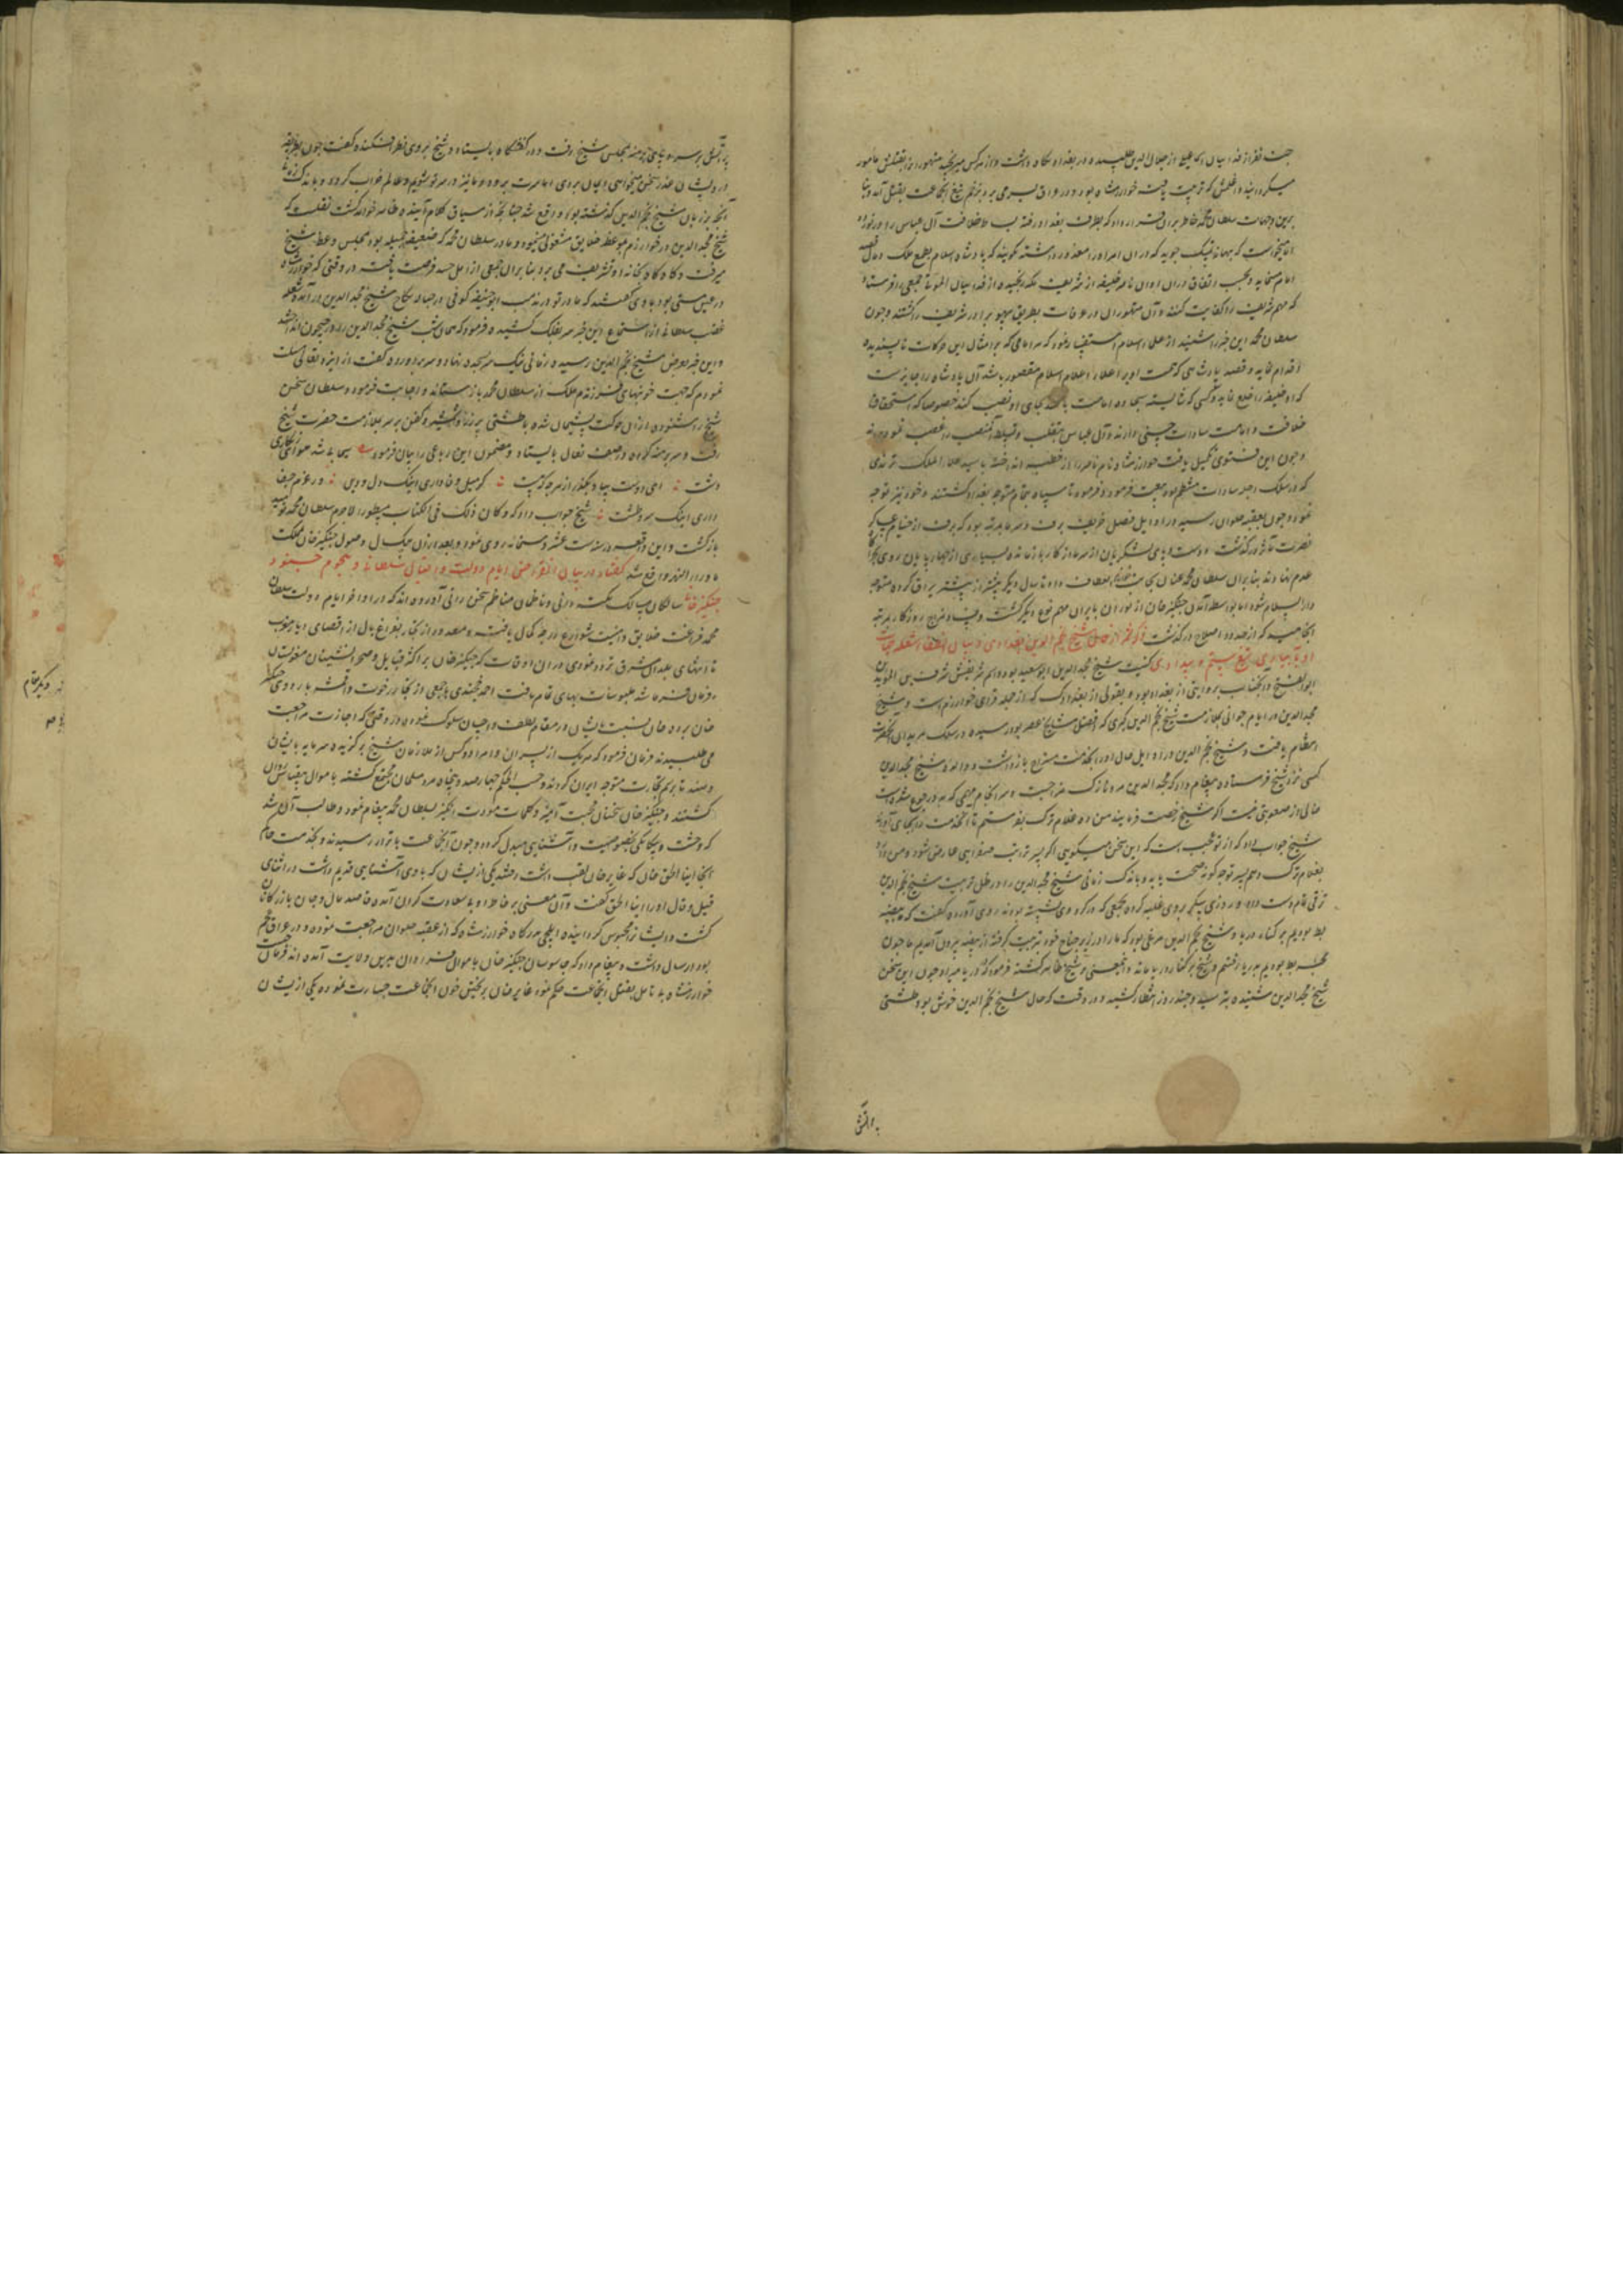 جهت نفر از فدائیان از جلال الدین طلبیده در بغداد نگاه داشت و از هر کس میرنجید متهوران را بقتلش مامور
میگردانید و اغلمش که تربیت یافت خوارزمشاه بود و در عراق بسر می برد بزخم تیغ آنجماعت بقتل آمد و بنا
برین جهات سلطان محمد خاطر بران قرار داد که بطرف بغداد رفته بساط خلافت آل عباس را در نوردد
اما میخواست که بهانه نیک جوید که دران امر او را معذور داشته نگویند که پادشاه اسلام بطمع ملک و مال قصد
امام نماید و بحسب اتفاق دران اوان ناصر خلیفه از شریف مکه رنجیده از فدائیان الموت جمعی را فرستاد
که مهم شریف را کفایت کنند و آن متهوران در عرفات بطریق سهو برادر شریف را کشتند و چون
سلطان محمد این خبر را شنید از علماء اسلام استفتا نمود که هر امامی که بر امثال این حرکات ناپسندیده
اقدام نماید و قصد پادشاهی که همت او بر اعلاء اعلام اسلام مقصور باشد آن پادشاه را جایز است
که او خلیفه را خلع نماید و کسی که شایسته سجاده امامت باشد بجای او نصب کند خصوصا که استحقاق
خلافت و امامت سادات حسینی دارند و آل عباس بتغلب و تسلط آن منصب را غصب نموده اند
و چون این فتوی تکمیل یافت خوارزمشاه نام ناصر را از خطبه انداخته با سید علاء الملک ترمدی
که در سلک اجله سادات منتظم بود بیعت فرمود و فرمود تا سپاه بتمام متوجه بغداد گشتند و خود نیز توجه
نمود و چون بعقبه حلوان رسید در اوایل فصل خریف برف و سرما بمرتبه بود که برف از خیام عساکر
نصرت مآثر در گذشت و دست و پای لشکریان از سرما از کار باز مانده بسیاری از چهارپایان روی بصحرای
عدم نهادند بنا بران سلطان محمد عنان بجانب خوارزم انعطاف داد تا سال دیگر بیشتر از پیشتر یراق کرده متوجه
دار السلام شود اما بواسطه آمدن چنگیز خان از توران بایران مهم نوع دیگر گشت و فساد مزاج روزگار بمرتبه
انجامید که از حد و اصلاح در گذشت ذکر شمه از حال شیخ مجد الدین بغدادی و بیان انطفاء شعله حیات
او بآبیاری تیغ ستم و بیدادی کنیت شیخ مجد الدین ابوسعید بود و اسم شریفش شرف بن الموید بن
ابو الفتح و آنجناب بروایتی از بغداد بود و بقولی از بغدادک که از جمله قرای خوارزم است و شیخ
مجد الدین در ایام جوانی بملازمت شیخ نجم الدین کبری که افضل مشایخ عصر بود رسیده در سلک مریدان آنحضرت
انتظام یافت و شیخ نجم الدین در اوایل حال او را بخدمت متوضا باز داشت و والده شیخ مجد الدین
کسی نزد شیخ فرستاده پیغام داد که مجد الدین مرد نازک مزاجیست و سرانجام مهمی که بدو رجوع شده است
خالی از صعوبتی نیست اگر شیخ رخصت فرمایند من ده غلام ترک بفرستم تا آنخدمت را بجای آورند
شیخ جواب داد که از تو عجیب است که این سخن میگویی اگر پسر ترا تب صفرایی عارض شود و من دارو
بغلام ترک دهم پسر تو چگونه صحت یابد و باندک زمانی شیخ مجد الدین را در ظل تربیت شیخ نجم الدین
ترقی تمام دست داد و روزی سکر بروی غلبه کرده بجمعی که در گرد وی نشسته بودند روی آورده گفت که ما بیضه
بط بودیم بر کنار دریا و شیخ نجم الدین مرغی بود که ما را در زیر جناح خود تربیت کرد تا از بیضه بیرون آمدیم ما چون
بچه بط بودیم بدریا رفتیم و شیخ بر کنار دریا ماند و اینمعنی بر شیخ ظاهر گشته فرمود که در دریا میراد و چون این سخن
شیخ مجد الدین شنیده بترسید و چند روز انتظار کشید و در وقت که حال شیخ نجم الدین خوش بود طشتی
پر آتش
پر آتش بر سر و پای برهنه بمجلس شیخ رفت و در کفشگاه بایستاد و شیخ بر وی نظر افکنده گفت چون بطریقه
درویشان عذر سخن میخواهی ایمان بردی اما سرت برود و ما نیز در سر تو شویم و عالم خراب گردد و باندک زمانی
آنچه بر زبان شیخ نجم الدین گذشته بود واقع شد چنانچه از سیاق کلام آینده ظاهر خواهد گشت نقلست که
شیخ مجد الدین در خوارزم بموعظه خلایق مشغولی مینمود و مادر سلطان محمد که ضعیفه جمیله بود بمجلس وعظ شیخ
میرفت و گاه گاه بخانه او تشریف می برد بنا بران جمعی از اهل حسد فرصت یافته در وقتی که خوارزمشاه
در عین مستی بود با وی گفتند که مادر تو در مذهب ابوحنیفه کوفی در حباله نکاح شیخ مجد الدین در آمده شعله
غضب سلطان از استماع این خبر سر بفلک کشید و فرمود که همان شب شیخ مجد الدین را در جیحون انداختند
و این خبر بعرض شیخ نجم الدین رسیده زمانی نیک سر بسجده نهاد و سر برآورده گفت از ایزد تعالی مسئلت
نمودم که جهت خونبهای فرزندم ملک از سلطان محمد باز ستاند و اجابت فرمود و سلطان سخن
شیخ را شنوده از ان حرکت پشیمان شده با طشتی پر زر و شمشیر و کفن بر سر بملازمت حضرت شیخ
رفت و سر برهنه کرده در صف نعال بایستاد و مضمون این رباعی را بیان فرمود
دشت ای دوست بیا و بگذر از هر چه گذشت گر میل وفا داری اینک دل و دین ور عزم جفا
داری اینک سر و طشت شیخ جواب داد که و کان ذلک فی الکتاب مسطورا لاجرم سلطان محمد نومید
بازگشت و این واقعه در سنه ست عشر و ستمائه روی نمود و بعد ازان بیک سال وصول چنگیز خان بمملکت
ماوراء النهر واقع شد گفتار در بیان انقراض ایام دولت و اقبال سلطانی و هجوم جنود
چنگیز خان سالکان مسالک نکته دانی و ناظمان مناظم سخن رانی آورده اند که در اواخر ایام دولت سلطان
محمد فراغت خلایق و امنیت شوارع درجه کمال یافت و صد و ر از تجار بفراغ بال از اقصای دیار مغرب
تا منتهای بلدان مشرق تردد مینمودی دران اوقات که چنگیز خان بر اکثر قبایل و صحرانشینان مغولستان
فرمان فرما شد ملبوسات بهای تمام یافت احمد خجندی با جمعی از تجار رخوت و اقمشه باردوی چنگیز
خان برده خان نسبت بایشان در مقام لطف و احسان سلوک نموده در وقتی که اجازت مراجعت
می طلبیدند فرمان فرمود که هر یک از پسران و امرا دو کس از ملازمان شیخ برگزیده سرمایه بایشان
دهند تا برسم تجارت متوجه ایران گردند و حسب الحکم چهار صد و پنجاه مرد مسلمان مجتمع گشته با موال بیقیاس روان
گشتند و چنگیز خان سخنان محبت آمیز و کلمات مودت انگیز بسلطان محمد پیغام نمود و طالب آن شد
که وحشت و بیگانگی بخصوصیت و آشنایی مبدل گردد و چون آنجماعت باترار رسیدند و بخدمت حاکم
آنجا اینالحق خان که غایر خان لقب داشت رفتند یکی از ایشان که با وی آشنایی قدیم داشت در اثنای
قیل و قال او را اینالحق گفت و آن معنی بر خاطر او بد سعادت گران آمده قاصد مال و جان بازرگانان
گشت و ایشانرا محبوس گردانیده ایلچی بدرگاه خوارزمشاه که از عقبه حلوان مراجعت نموده و در عراق مقیم
بود ارسال داشت و پیغام داد که جاسوسان چنگیز خان با موال فراوان بدین ولایت آمده اند فرمان چیست
خوارزمشاه بی تامل بقتل آنجماعت حکم نمود غایر خان بریختن خون آنجماعت جسارت نموده یکی از ایشان